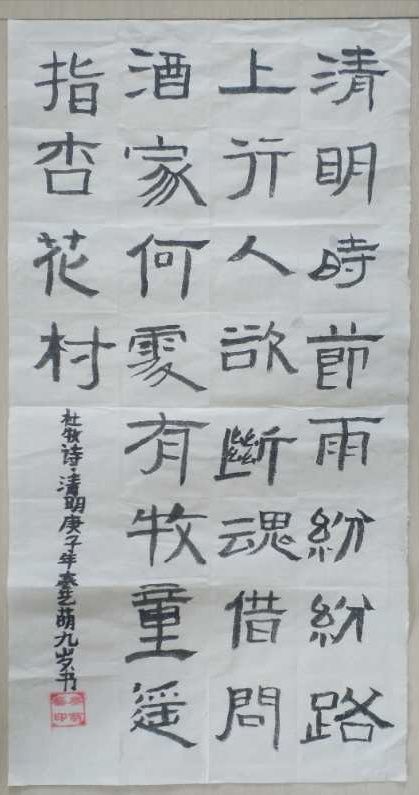 清明時節雨紛紛路
上行人欲斷魂借問
酒家何處有牧童遥
指杏花村
杜牧詩·清明庚子年春艺萌九岁书